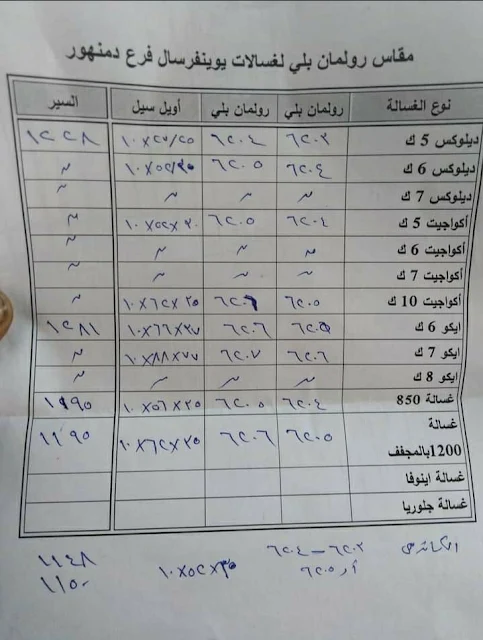 مقاس رولمان بلي لغسالات يوينفرسال فرع دمنهور
نوع الغسالة رولمان بلي رولمان بلي أويل سيل السير
ديلوكس 5 ك ٦٢٠٣ ٦٢٠٤ ١٢٢٨
ديلوكس 6 ك ٦٢٠٤ ٦٢٠٥ ١٠X٥٢/٣٥ 〃
ديلوكس 7 ك 〃 〃 〃 〃
أكواجيت 5 ك ٦٢٠٤ ٦٢٠٥ 〃
أكواجيت 6 ك 〃 〃 〃 〃
أكواجيت 7 ك 〃 〃 〃 〃
أكواجيت 10 ك ٦٢٠٥ ٦٢٠٦ ١٠X٦٢X٣٥ 〃
ايكو 6 ك ٦٢٠٥ ٦٢٠٦ ١٢٨١
ايكو 7 ك ٦٢٠٦ ٦٢٠٧ 〃
ايكو 8 ك 〃 〃 〃 〃
غسالة 850 ٦٢٠٤ ٦٢٠٥ ١٠X٥٦X٣٥ ١١٩٥
غسالة
1200بالمجفف ٦٢٠٥ ٦٢٠٦ ١٠X٦٢X٣٥ ١١٩٥
غسالة اينوفا
غسالة جلوريا
٦٢٠٣ – ٦٢٠٤ ١١٤٨
أر ٦٢٠٥ ١٠X٥٢X٣٥ ١١٥٠